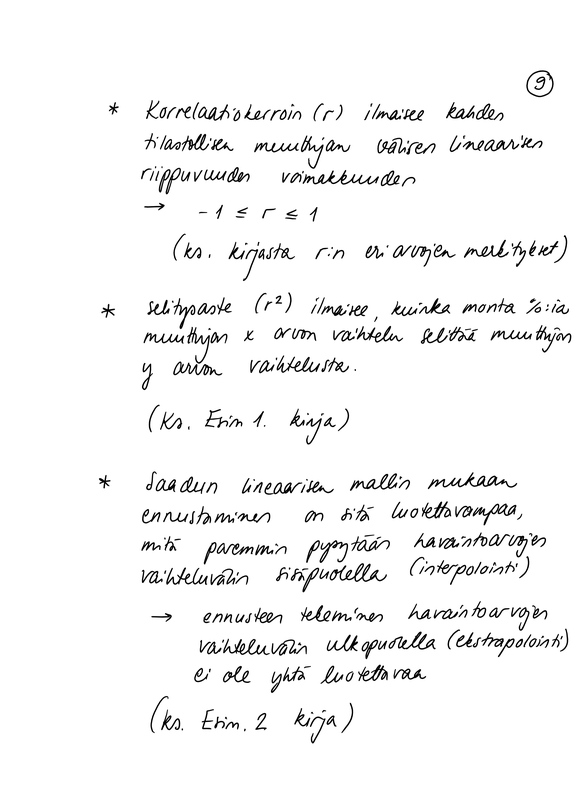 9
* Korrelaatiokerroin (r) ilmaisee kahden
tilastollisen muuttujan välisen lineaarisen
riippuvuuden voimakkuuden
→ -1 ≤ r ≤ 1
(ks. kirjasta r:n eri arvojen merkitykset)
* selitysaste (r²) ilmaisee, kuinka monta %:ia
muuttujan x arvon vaihtelu selittää muuttujan
y arvon vaihtelusta.
(Ks. Esim 1. kirja)
* Saadun lineaarisen mallin mukaan
ennustaminen on sitä luotettavampaa,
mitä paremmin pysytään havaintoarvojen
vaihteluvälin sisäpuolella (interpolointi)
→ ennusteen tekeminen havaintoarvojen
vaihteluvälin ulkopuolella (ekstrapolointi)
ei ole yhtä luotettavaa
(ks. Esim. 2 kirja)